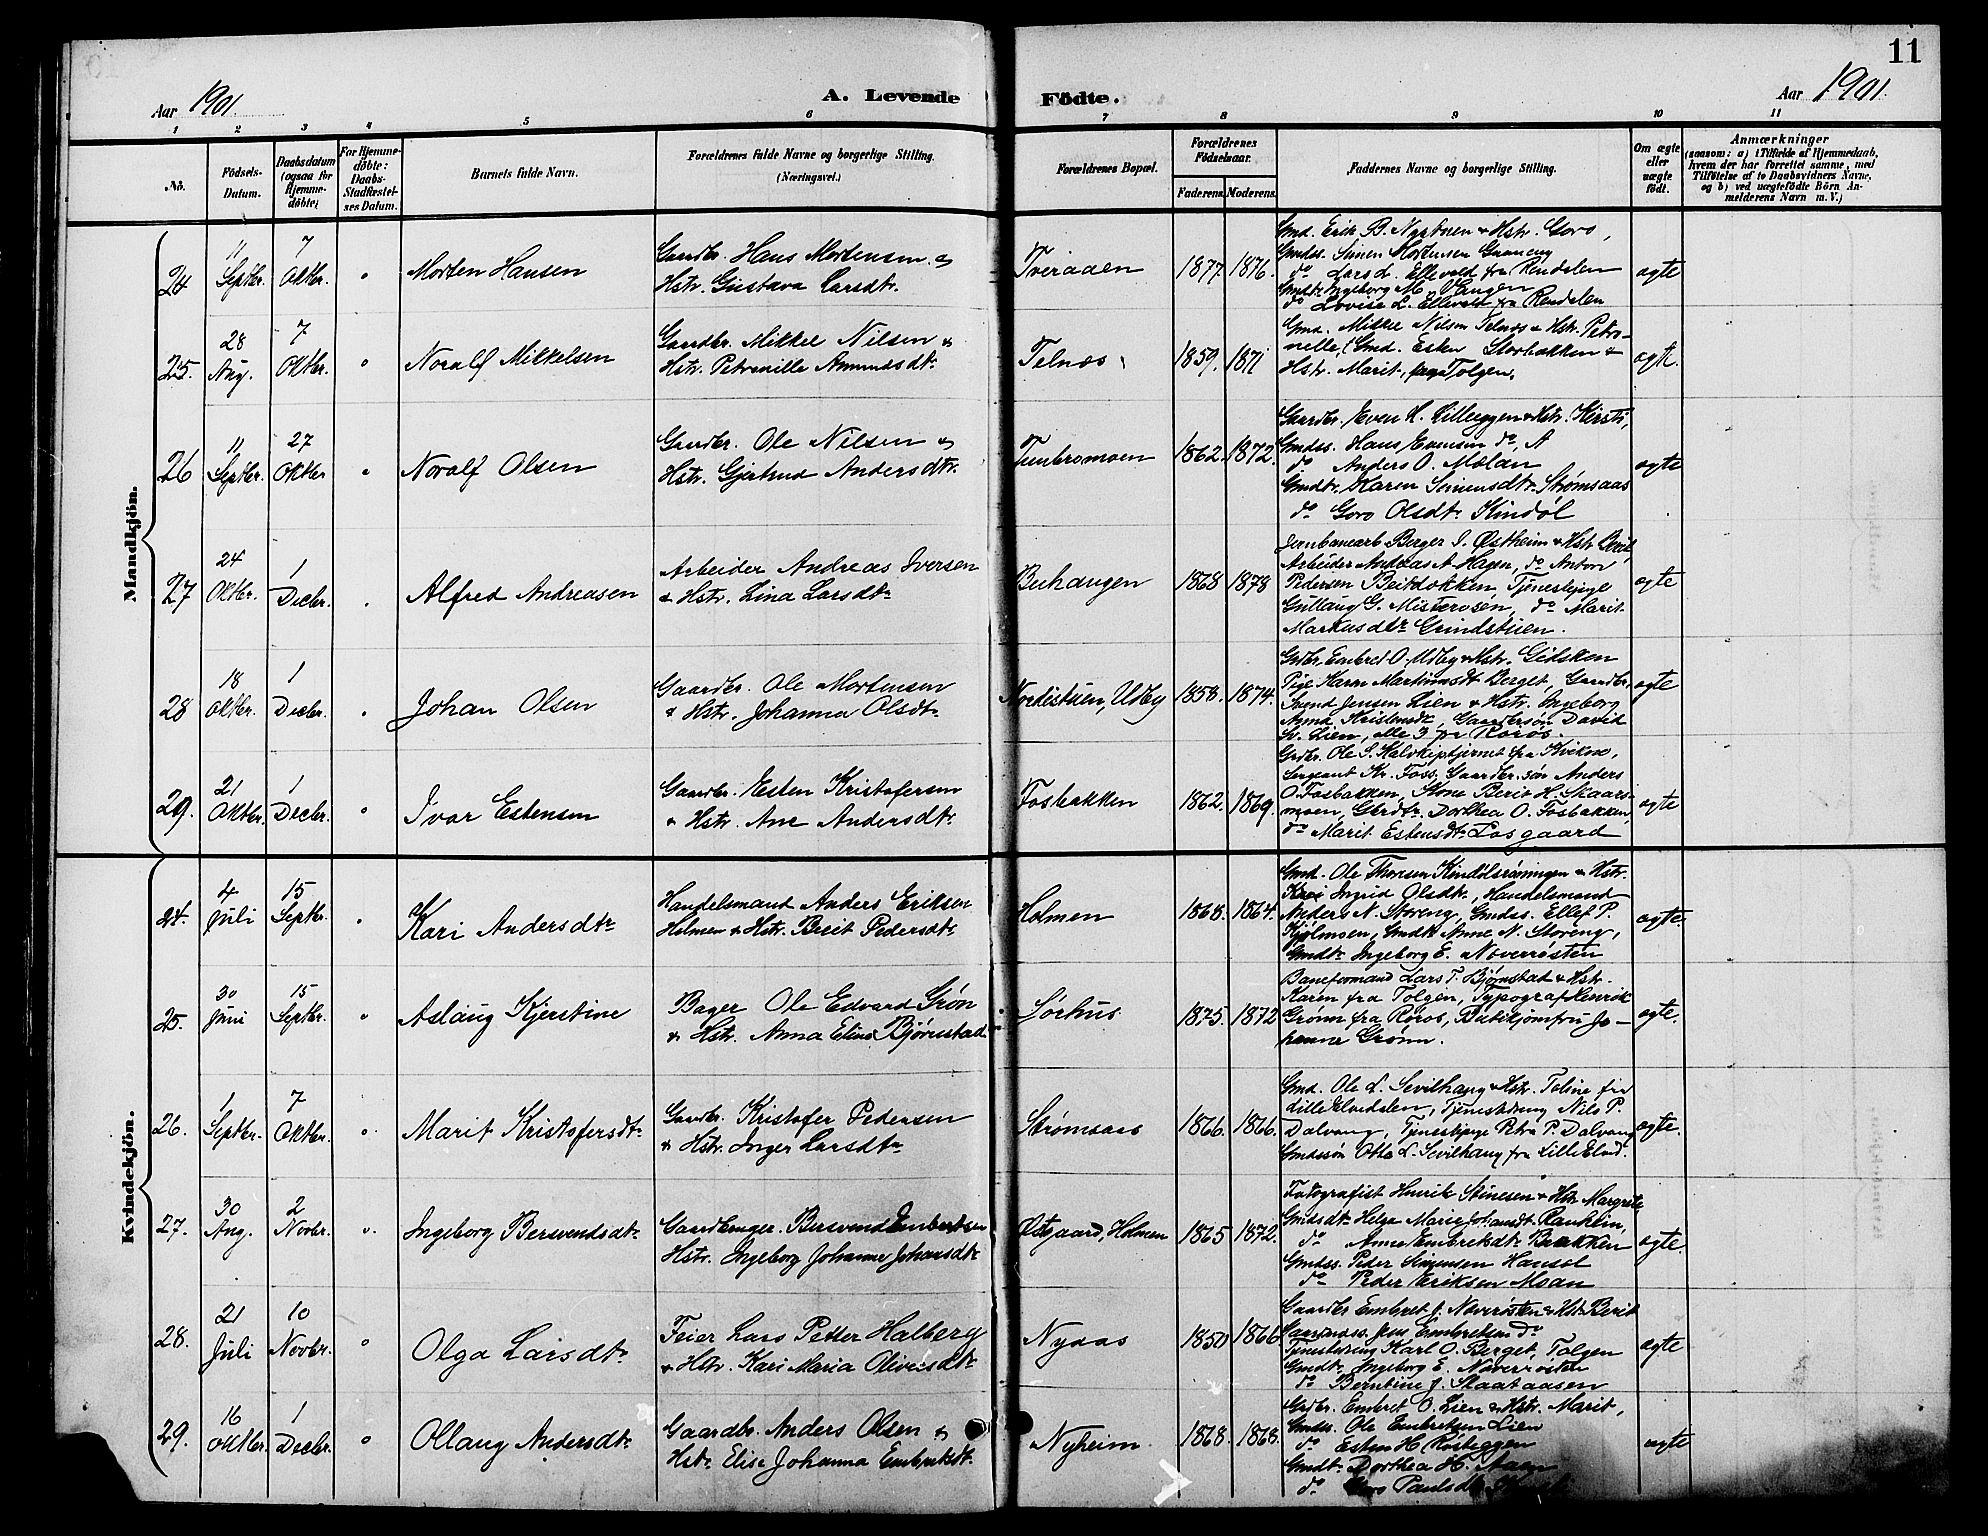 11
Aar 1901.
A. Levende Födte.
Aar 1901.
1 2 3 4 5 6 7 8 9 10 11
No.
Födsels-
Datum.
Daabsdatum
(ogsaa for
Hjemme-
döbte)
For Hjemme-
döbte:
Daabs-
Stadfæstel-
ses Datum.
Barnets fulde Navn.
Forældrenes fulde Navne og borgerlige Stilling.
(Næringsvei.)
Forældrenes Bopæl.
Forældrenes
Födselsaar.
Faderens. Moderens.
Faddernes Navne og borgerlige Stilling.
Om ægte
eller
uægte
födt.
Anmærkninger
(saasom: a) i Tilfælde af Hjemmedaab,
hvem der har forrettet samme, med
Tilföielse af to Daabsvidners Navne,
og b) ved uægtefödte Börn An-
melderens Navn m. V.)
Mandkjön.
24
11 Septbr.
7 Oktbr.
"
Morten Hansen
Gaardbr. Hans Mortensen &
Hstr. Gustava Larsdtr.
Tveraaen
1877. 1876.
Gmd. Erik B. Nyrtnen & Hstr. Goro,
Gmdss. Simen Mortensen Graaneng
do Lars L. Ellevold fra Rendalen
Gmdtr. Ingeborg M. Vangen
do Lovise L. Ellevold fra Rendalen
ægte
25.
28 Aug.
7 Oktbr.
"
Noralf Mikkelsen
Gaardbr. Mikkel Nilsen &
Hstr. Petronille Amundsdtr.
Telnæs
1859. 1871
Gmd. Mikkel Nilsen Telnæs & Hstr. Petro-
nelle, Gmd. Esten Storbakken &
Hstr. Marit, fra Tolgen.
ægte.
26
11 Septbr.
27 Oktbr
"
Noralf Olsen
Gaardbr. Ole Nilsen &
Hstr. Gjertrud Andersdtr.
Tunbromoen
1862. 1872.
Gaardbr. Even H. Lilleeggen & Hstr. Kirsti,
Gmdss. Hans Evensen do,
do Anders O. Molan
Gmdtr. Karen Simensdtr. Strømsaas
do Goro Olsdtr. Kindøl
ægte
27
24 Oktbr.
1 Decbr.
"
Alfred Andreasen
Arbeider Andreas Iversen
& Hstr. Lina Larsdtr
Berhaugen
1868 1878
Jernbanearb. Berger I. Østheim & Hstr. Berit,
Arbeider Andreas A. Hagen, do Anton
Pedersen Bakløkken, Tjenestepige
Gullaug G. Misterosen, do Marit
Markusdtr Grindstuen.
ægte
28
18 Oktbr.
1 Decbr.
"
Johan Olsen
Gaardbr. Ole Mortensen
& Hstr. Johanna Olsdtr
Nordistuen, Udby
1858. 1874.
Grdbr. Embred O. Udby & Hstr. Gidsken
Pige Karen Martinusdt Berget, Gaardbr.
Svend Jensen Lien & Hstr. Ingeborg
Anna Kristensdtr, Gaardbersøn David
Sv. Lien, alle 3 fra Røros.
ægte
29.
21 Oktbr.
1 Decbr.
"
Ivar Estensen
Gaardbr. Esten Kristofersen
& Hstr. Ane Andersdtr.
Fosbakken
1862. 1869.
Grdbr. Ole S. Halvkiptjernet fra Kvikne,
Sergeant Kr. Foss, Gaardbr.søn Anders
O. Fosbakken, Kone Berit H. Skaars-
moen, Grdtr. Dorthea O. Fosbakken
do Marit Estensdtr. Losgaard
ægte
Kvindekjön.
24.
4 Juli
15 Septbr.
"
Kari Andersdtr
Handelsmand Anders Eriksen
Holmen & Hstr. Berit Pedersdtr
Holmen
1868. 1864.
Gmd. Ole Thoresen Kindølsrønningen & Hstr.
Kari Ingrid Olsdtr., Handelsmand
Anders N. Storeng, Gmdss. Ellef P.
Kjølmoen, Gmdtr Anne N. Storeng,
Gmdtr Ingeborg E. Nøverrøsten
ægte.
25.
30 Juni
15 Septbr.
"
Aslaug Kjerstine
Bager Ole Edvard Grøn
& Hstr. Anna Elise Bjørnstad
Sørhus
1875. 1872
Baneformand Lars T. Bjørnstad & Hstr.
Karen fra Tolgen, Typograf Henrik
Grønn fra Røros, Butikjomfru Jo-
hanne Grønn.
ægte.
26.
1 Septbr.
7 Oktbr.
"
Marit Kristofersdtr
Gaardbr Kristofer Pedersen
& Hstr. Inger Larsdtr
Strømsaas
1866. 1866.
Gmd. Ole L. Sevilhaug & Hstr. Toline fra
Lille Elvedalen, Tjenestedreng Nils P.
Dalvang, Tjenestepige Petra P. Dalvang
Gmdssøn Otto L. Sevilhaug fra Lille Elvd.
ægte.
27.
30 Aug.
2 Novbr.
"
Ingeborg Bersvendsdtr
Gaardbruger. Bersvend Embretsen
Hstr. Ingeborg Johanne Johansdtr
Østgaard, Holmen
1865 1872.
Fotografist Henrik Stinesen & Hstr. Margrete
Gmdsdtr Helga Marie Johansdtr Rauhlin,
do Anne Embretsdtr Bakken
Gmdss. Peder Simensen Hansøl
do Peder Eriksen Moan
ægte.
28.
21 Juli
10 Novbr.
"
Olga Larsdtr
Feier Lars Petter Halberg
& Hstr. Kari Maria Olivesdtr
Nyaas
1850 1866
Gaardbr Embret J. Nøverrøsten & Hstr Berit
Gaardmss. Jens Embretsen do
Tjenestedreng Karl O. Berget, Tolgen
Gmdtr Ingeborg E. Nøverrøsten
do Berntine J. Staataasen
ægte
29.
16 Oktbr.
1 Decbr.
"
Ollaug Andersdtr
Gaardbr. Anders Olsen &
Hstr Elise Johanna Embretsdtr.
Nyheim
1868. 1868.
Grdbr. Embret O. Lien & Hstr. Marit,
Gmdss. Ole Embretsen Lien
do Esten H. Røsteggen
Gmdtr. Dorthea H. Aasen
do Goro Paulsdtr
ægte